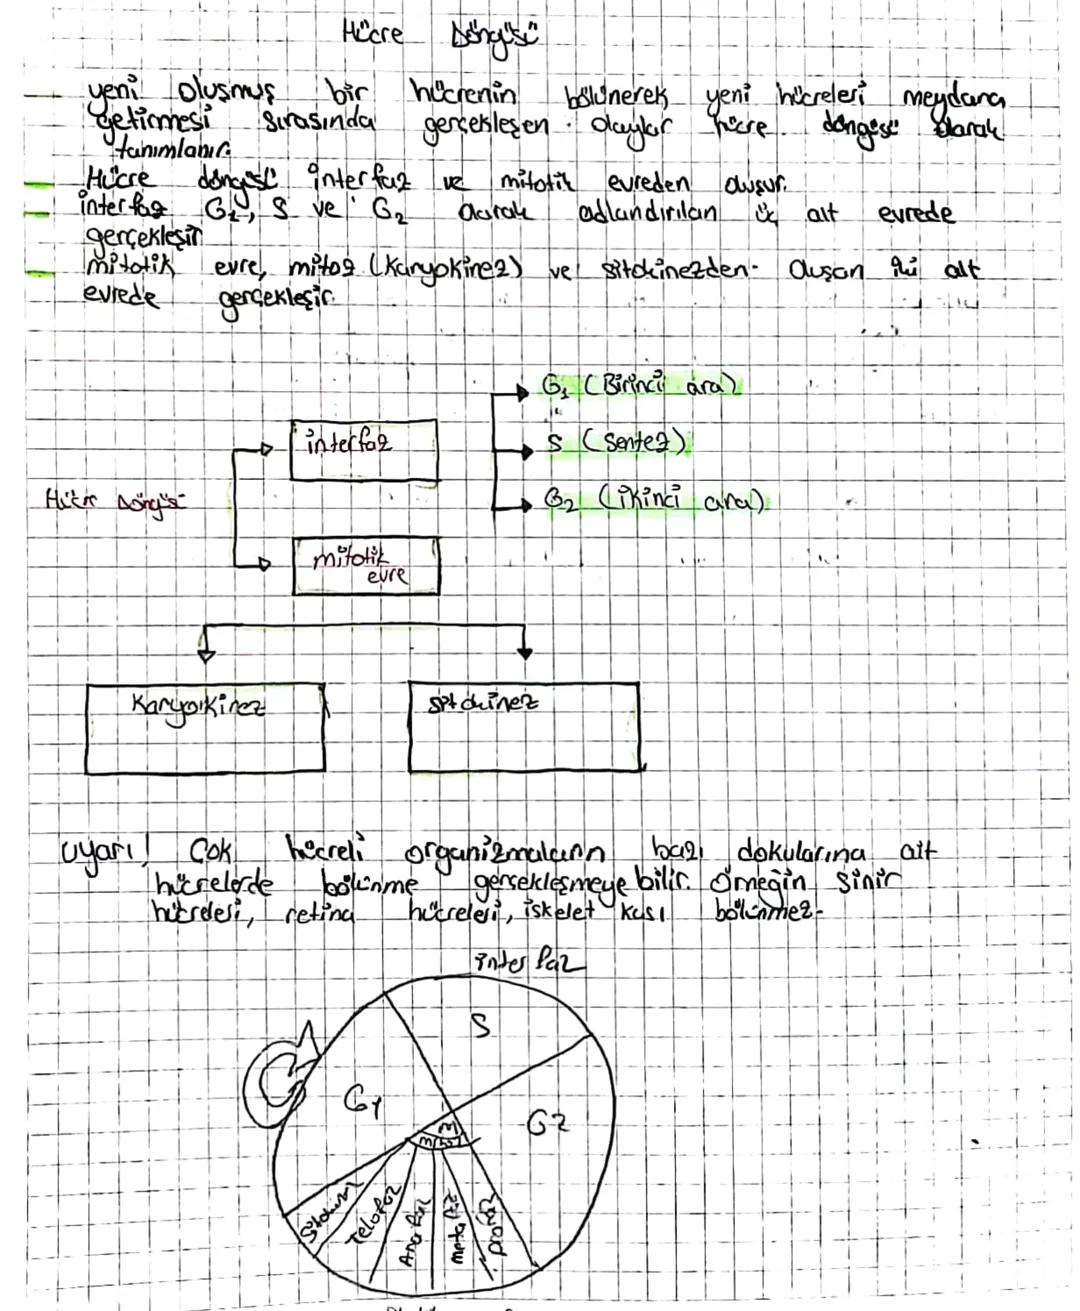 Hücre Döngüsü
yeni oluşmuş bir hücrenin bölünerek yeni hücreleri meydana
getirmesi sırasında gerçekleşen olaylar hücre döngüsü olarak
tanımlanır.
Hücre döngüsü interfaz ve mitotik evreden oluşur.
interfaz G1, S ve G2 olarak adlandırılan üç alt evrede
gerçekleşir
mitotik evre, mitoz (karyokinez) ve sitokinezden oluşan iki alt
evrede gerçekleşir.
G1 (Birinci ara)
interfaz
S (Sentez)
Hücre Döngüsü
G2 (ikinci ara)
mitotik
evre
Karyokinez
sitokinez
uyarı! Çok hücreli organizmaların bazı dokularına ait
hücrelerde bölünme gerçekleşmeye bilir. örneğin sinir
hücresi, retina hücreleri, iskelet kası bölünmez.
interfaz
S
G1
G2
mitoz
Sitokinez
Telofaz
Ana faz
metafaz
profaz